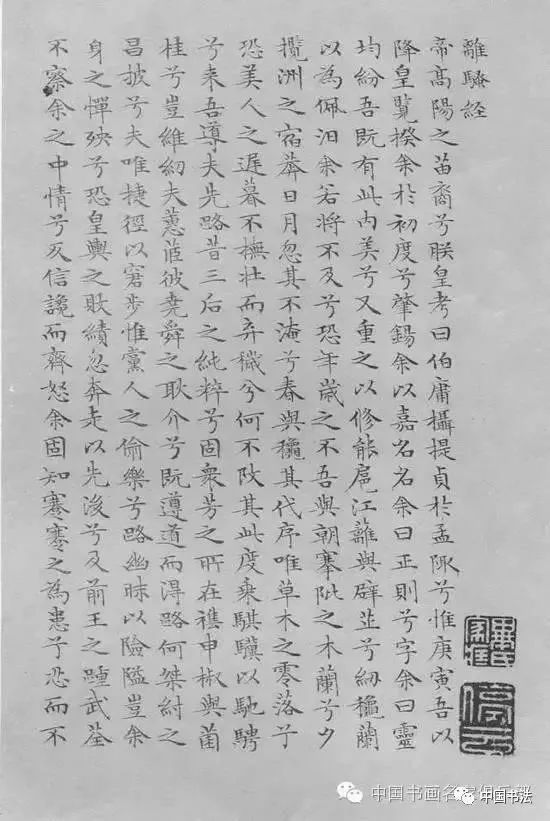 離騷經
帝高陽之苗裔兮朕皇考曰伯庸攝提貞於孟陬兮惟庚寅吾以
降皇覽揆余於初度兮肇錫余以嘉名名余曰正則兮字余曰靈
均紛吾既有此內美兮又重之以修能扈江離與辟芷兮紉龝蘭
以為佩汩余若將不及兮恐年歲之不吾與朝搴阰之木蘭兮夕
攬洲之宿莽日月忽其不淹兮春與龝其代序唯草木之零落兮
恐美人之遲暮不撫壯而弃穢兮何不改其此度乘騏驥以馳騁
兮来吾導夫先路昔三后之純粹兮固衆芳之所在襍申椒與菌
桂兮豈維紉夫蕙茝彼堯舜之耿介兮既遵道而得路何桀紂之
昌披兮夫唯捷徑以窘步惟黨人之偷樂兮路幽昧以險隘豈余
身之憚殃兮恐皇輿之敗績忽奔走以先後兮及前王之踵武荃
不察余之中情兮反信讒而齊怒余固知謇謇之為患兮忍而不
停云
中国书画名家
中国书法